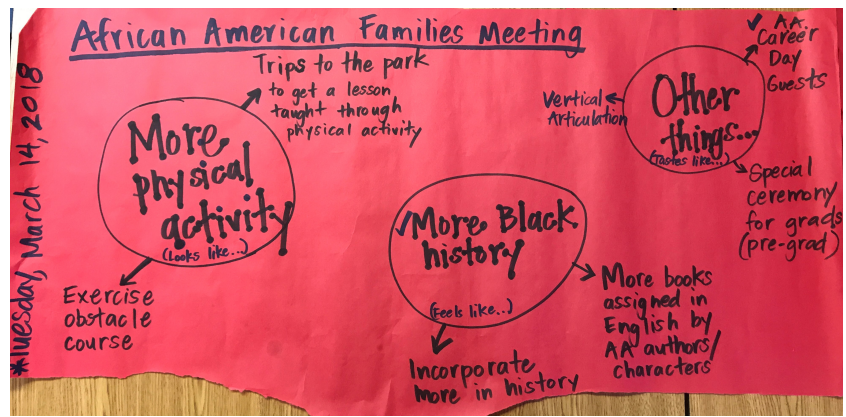 African American Families Meeting
*Tuesday, March 14, 2018
More
physical
activity
(Looks like...)
Trips to the park
to get a lesson
taught through
physical activity
Exercise
obstacle
course
✓More Black
history
(Feels like...)
Incorporate
more in history
More books
assigned in
English by
AA authors/
characters
Other
things...
(Tastes like...)
Vertical
Articulation
✓ AA
Career
Day
Guests
Special
ceremony
for grads
(pre-grad)